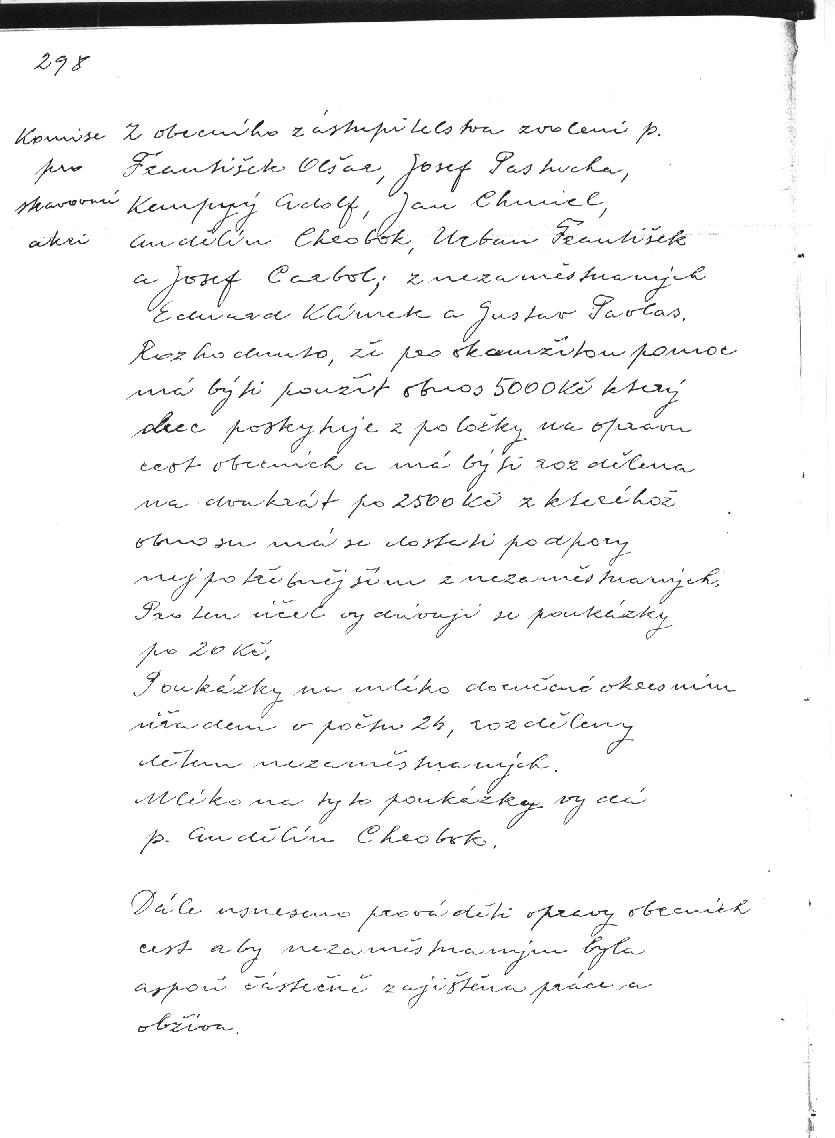 298
Komise
pro
stravovní
akci
Z obecního zástupitelstva zvoleni p.
František Olšar, Josef Pastucha,
Kempný Adolf, Jan Chmiel,
Andělín Chrobok, Urban František
a Josef Carbol; z nezaměstnaných
Eduard Klimek a Gustav Pavlas.
Rozhodnuto, že pro okamžitou pomoc
má býti použit obnos 5000 Kč který
obec poskytuje z položky na opravu
cest obecních a má býti rozdělena
na dvakrát po 2500 Kč z kteréhož
obnosu má se dostati podpory
nejpotřebnějším z nezaměstnaných.
Pro ten účel vydávají se poukázky
po 20 Kč.
Poukázky na mléko doručené okresním
úřadem v počtu 26, rozděleny
dětem nezaměstnaných.
Mléko na tyto poukázky vydá
p. Andělín Chrobok.
Dále usneseno prováděti opravy obecních
cest aby nezaměstnaným byla
aspoň částečně zajištěna práce a
obživa.